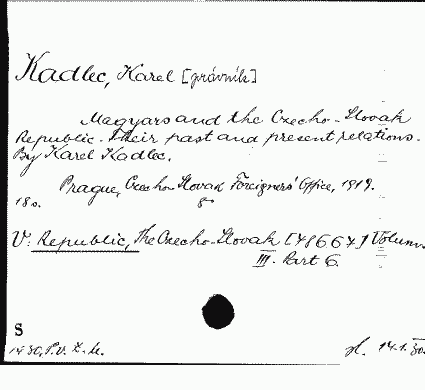 Kadlec, Karel [právník]
Magyars and the Czecho-Slovak
Republic. Their past and present relations.
By Karel Kadlec.
Prague, Czecho-Slovak Foreigners' Office, 1919.
18 s. 8°
V: Republic, The Czecho-Slovak [48667] Volume
III. Part 6.
S
1430, P.v. 14.1.30